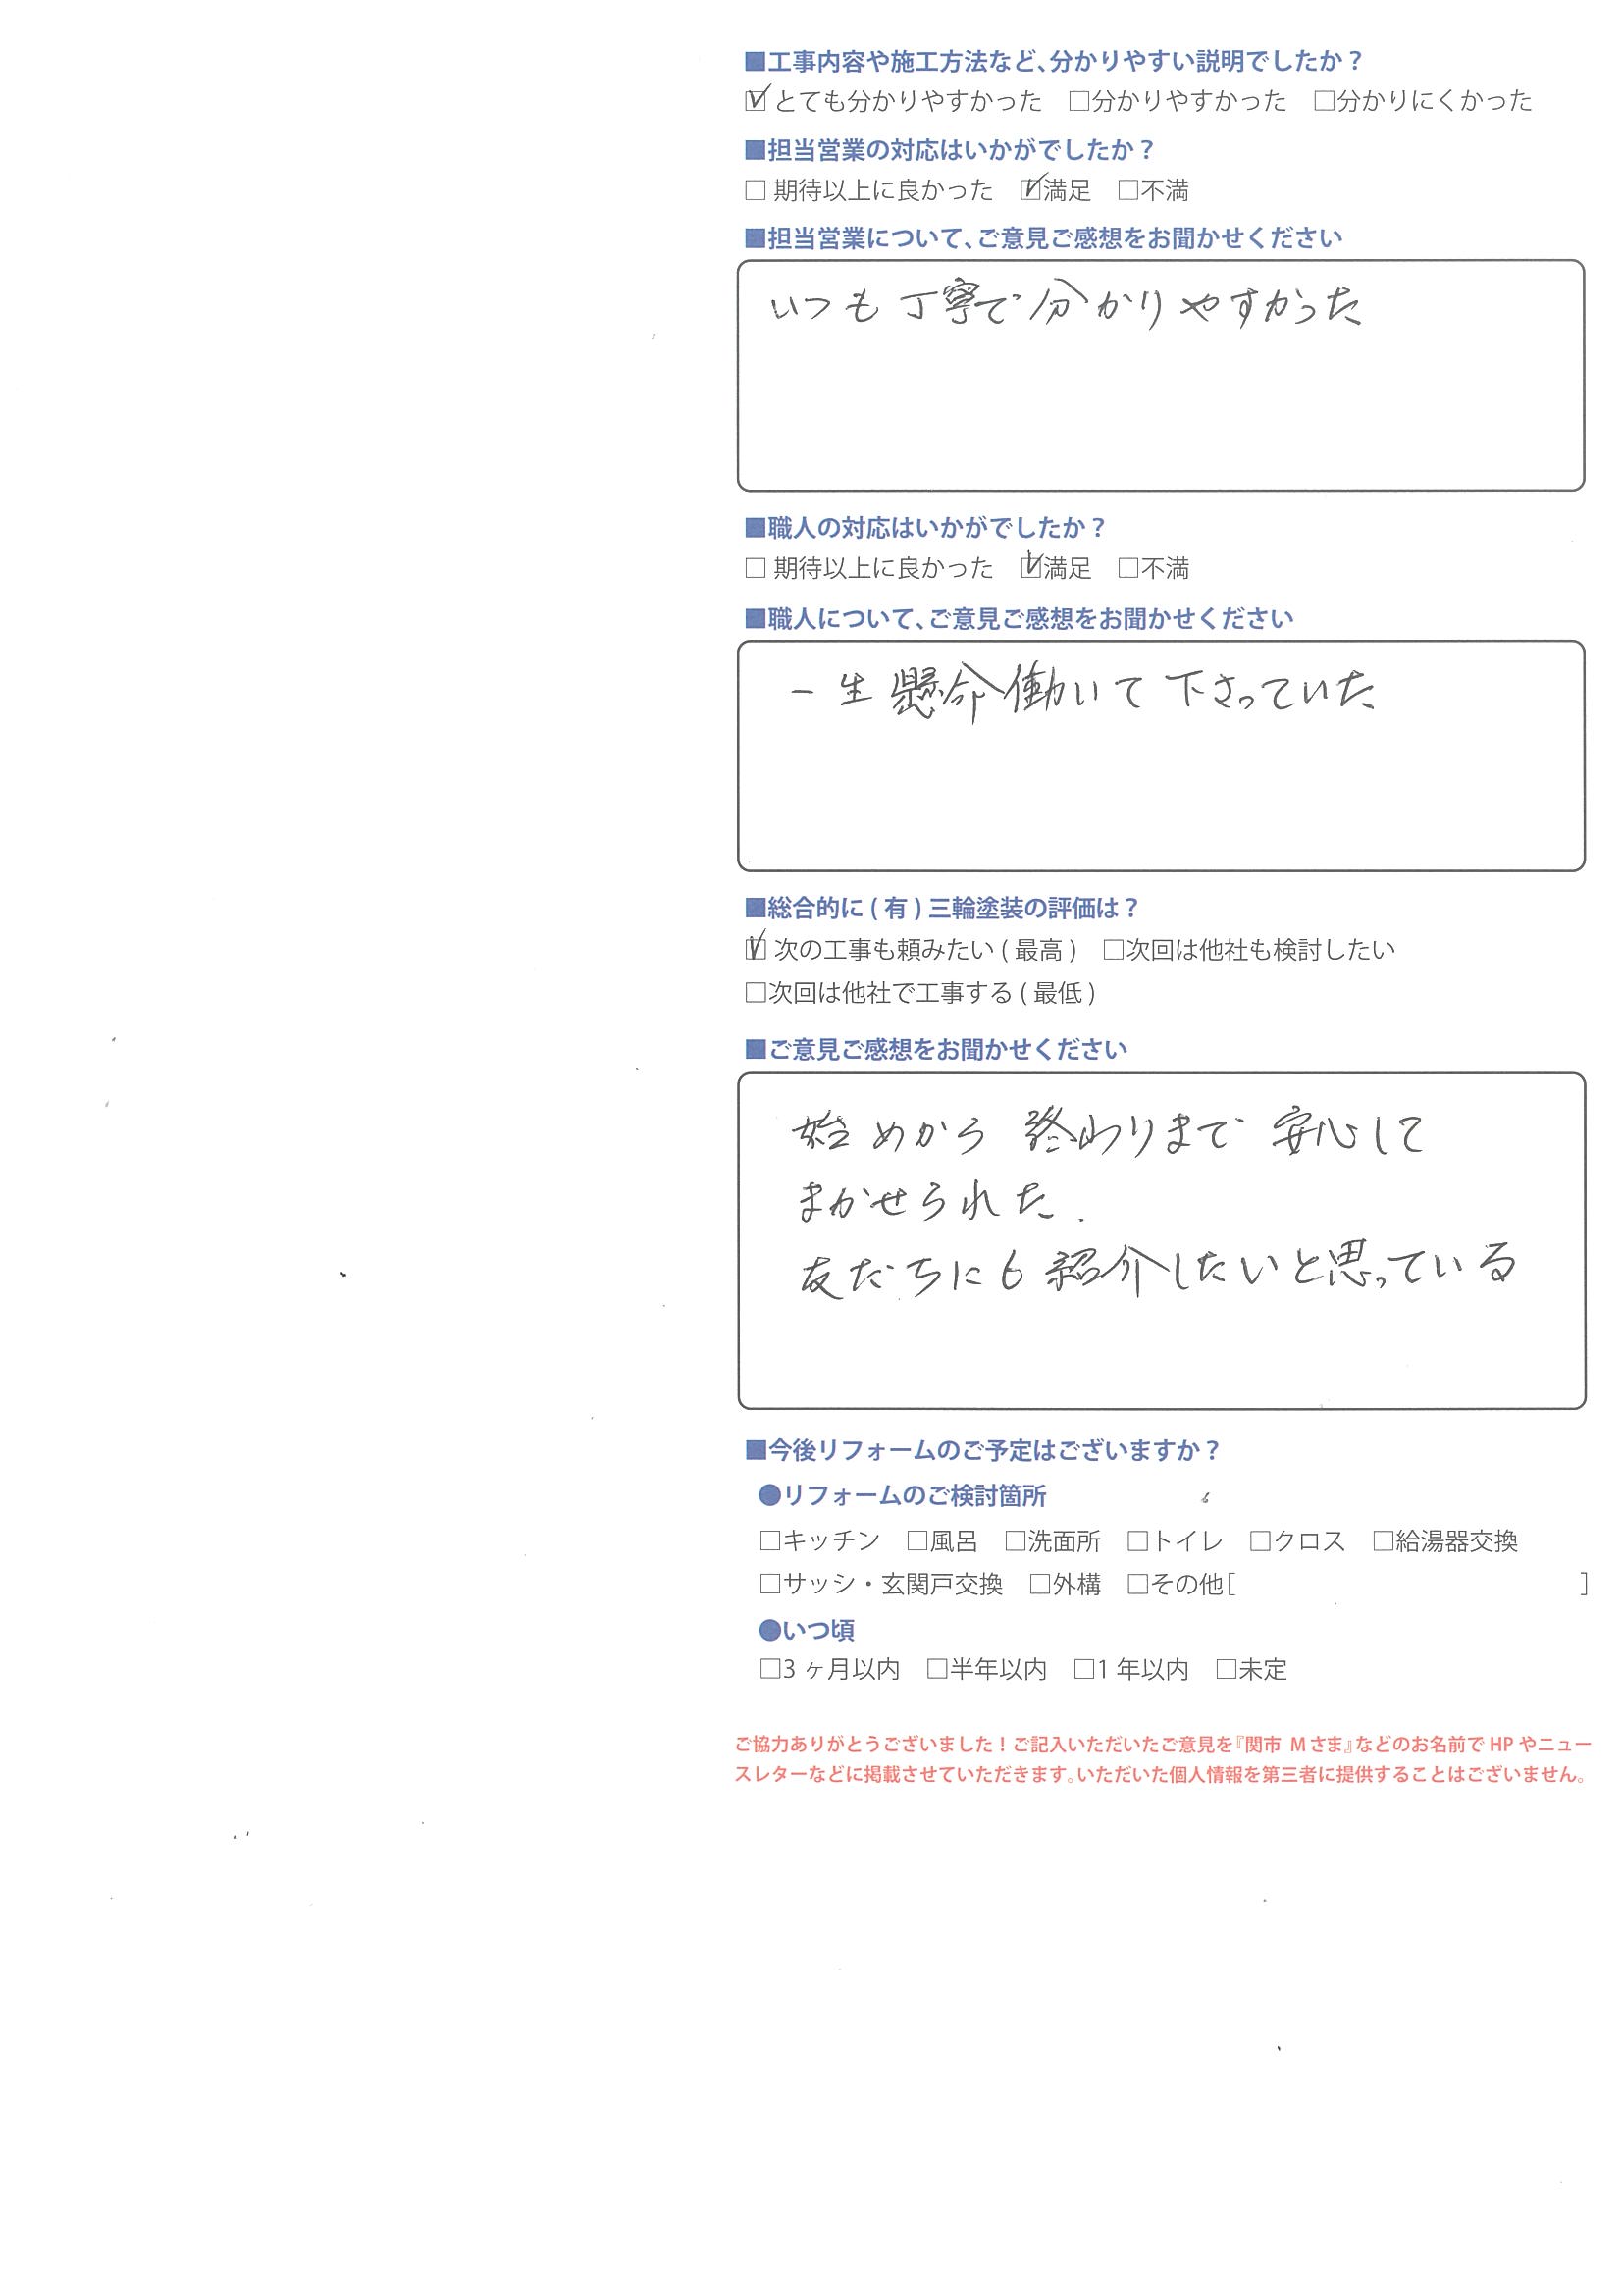 ■工事内容や施工方法など、分かりやすい説明でしたか？
☑とても分かりやすかった □分かりやすかった □分かりにくかった
■担当営業の対応はいかがでしたか？
□ 期待以上に良かった ☑満足 □不満
■担当営業について、ご意見ご感想をお聞かせください
いつも丁寧で分かりやすかった
■職人の対応はいかがでしたか？
□ 期待以上に良かった ☑満足 □不満
■職人について、ご意見ご感想をお聞かせください
一生懸命働いて下さっていた
■総合的に(有)三輪塗装の評価は？
☑ 次の工事も頼みたい(最高) □次回は他社も検討したい
□次回は他社で工事する(最低)
■ご意見ご感想をお聞かせください
始めから終わりまで安心して
まかせられた.
友だちにも紹介したいと思っている
■今後リフォームのご予定はございますか？
●リフォームのご検討箇所
□キッチン □風呂 □洗面所 □トイレ □クロス □給湯器交換
□サッシ・玄関戸交換 □外構 □その他[ ]
●いつ頃
□3ヶ月以内 □半年以内 □1年以内 □未定
ご協力ありがとうございました！ご記入いただいたご意見を『関市 Mさま』などのお名前でHPやニュー
スレターなどに掲載させていただきます。いただいた個人情報を第三者に提供することはございません。